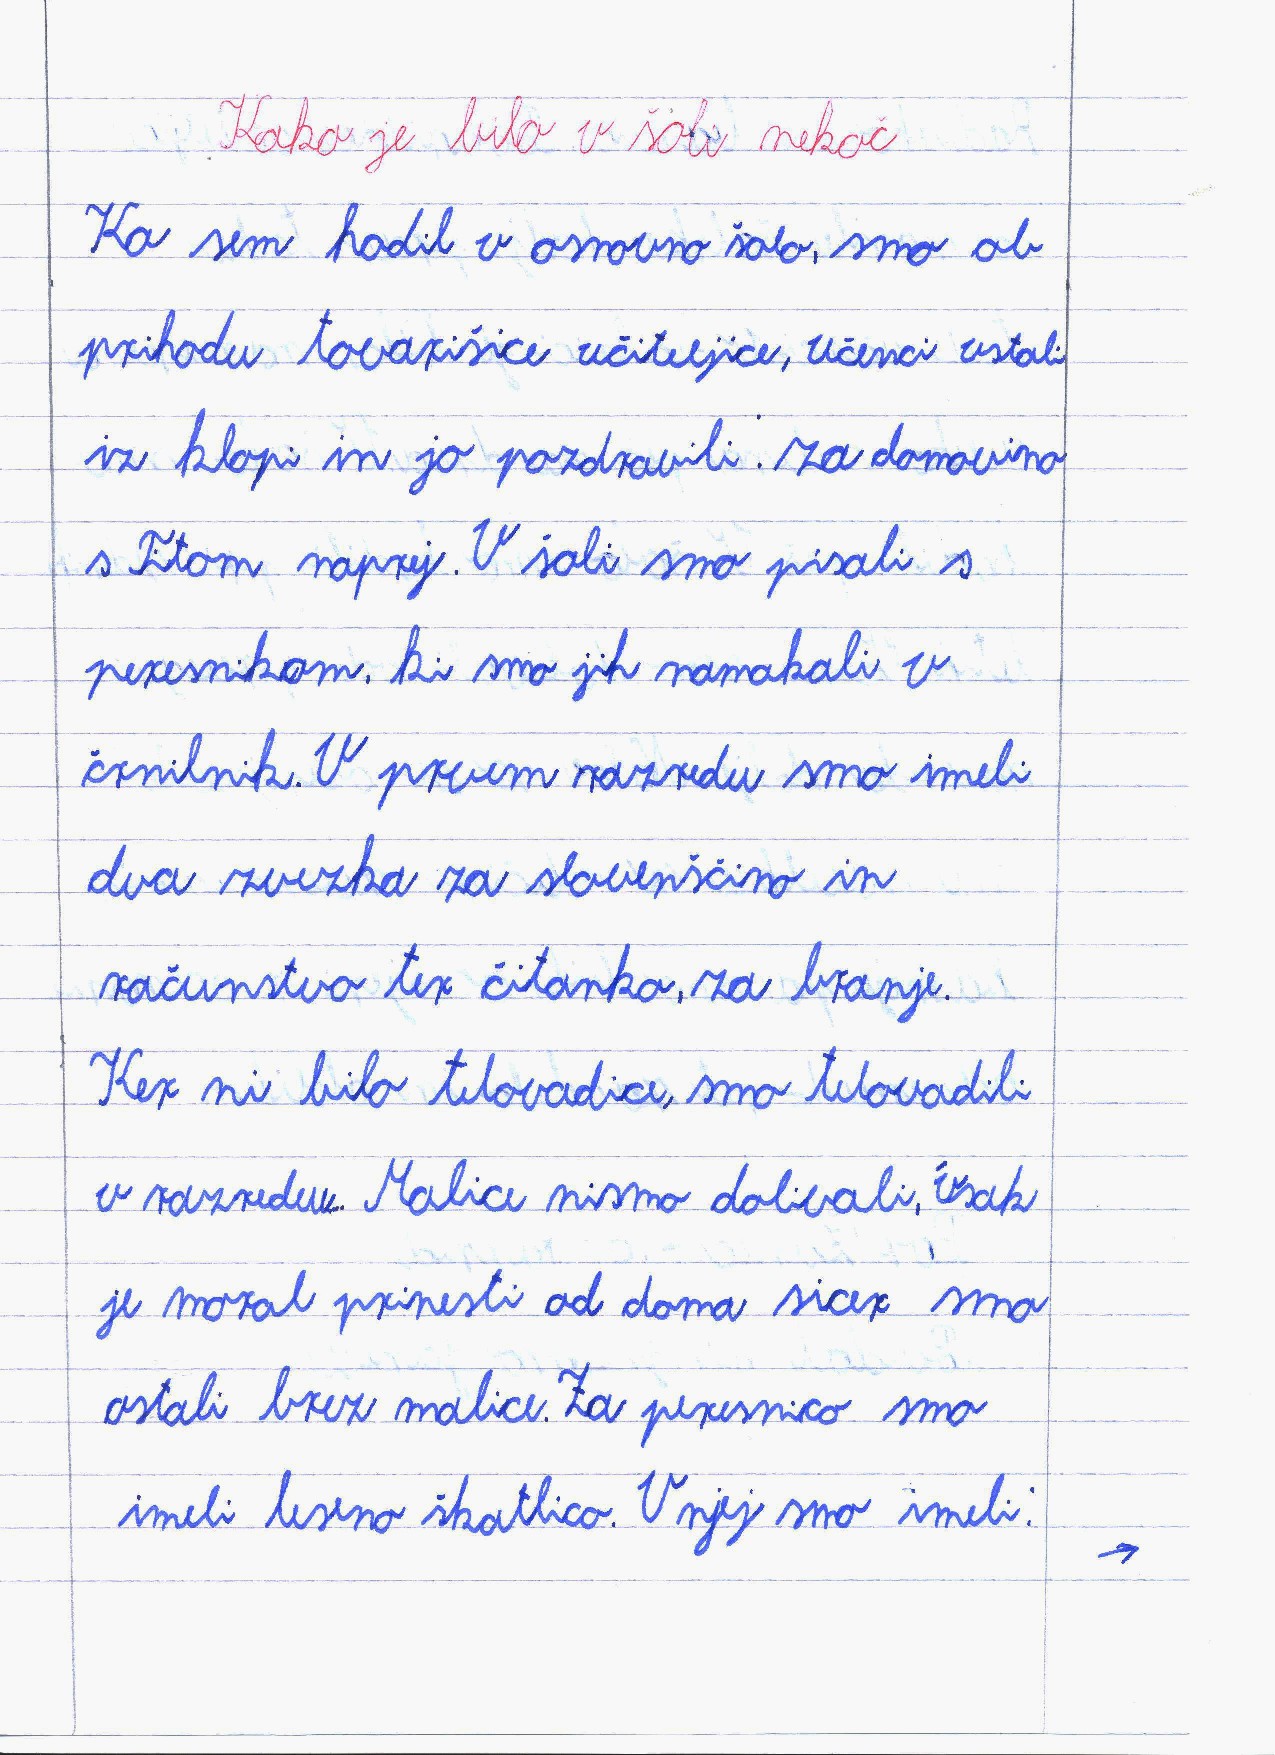 Kako je bilo v šoli nekoč
Ko sem hodil v osnovno šolo, smo ob
prihodu tovarišice učiteljice, učenci vstali
iz klopi in jo pozdravili: za domovino
s Titom naprej. V šoli smo pisali s
peresnikom, ki smo jih namakali v
črnilnik. V prvem razredu smo imeli
dva zvezka za slovenščino in
računstvo ter čitanko, za branje.
Ker ni bilo telovadice, smo telovadili
v razredu. Malice nismo dobivali, vsak
je moral prinesti od doma sicer smo
ostali brez malice. Za peresnico smo
imeli leseno škatlico. V njej smo imeli:
→